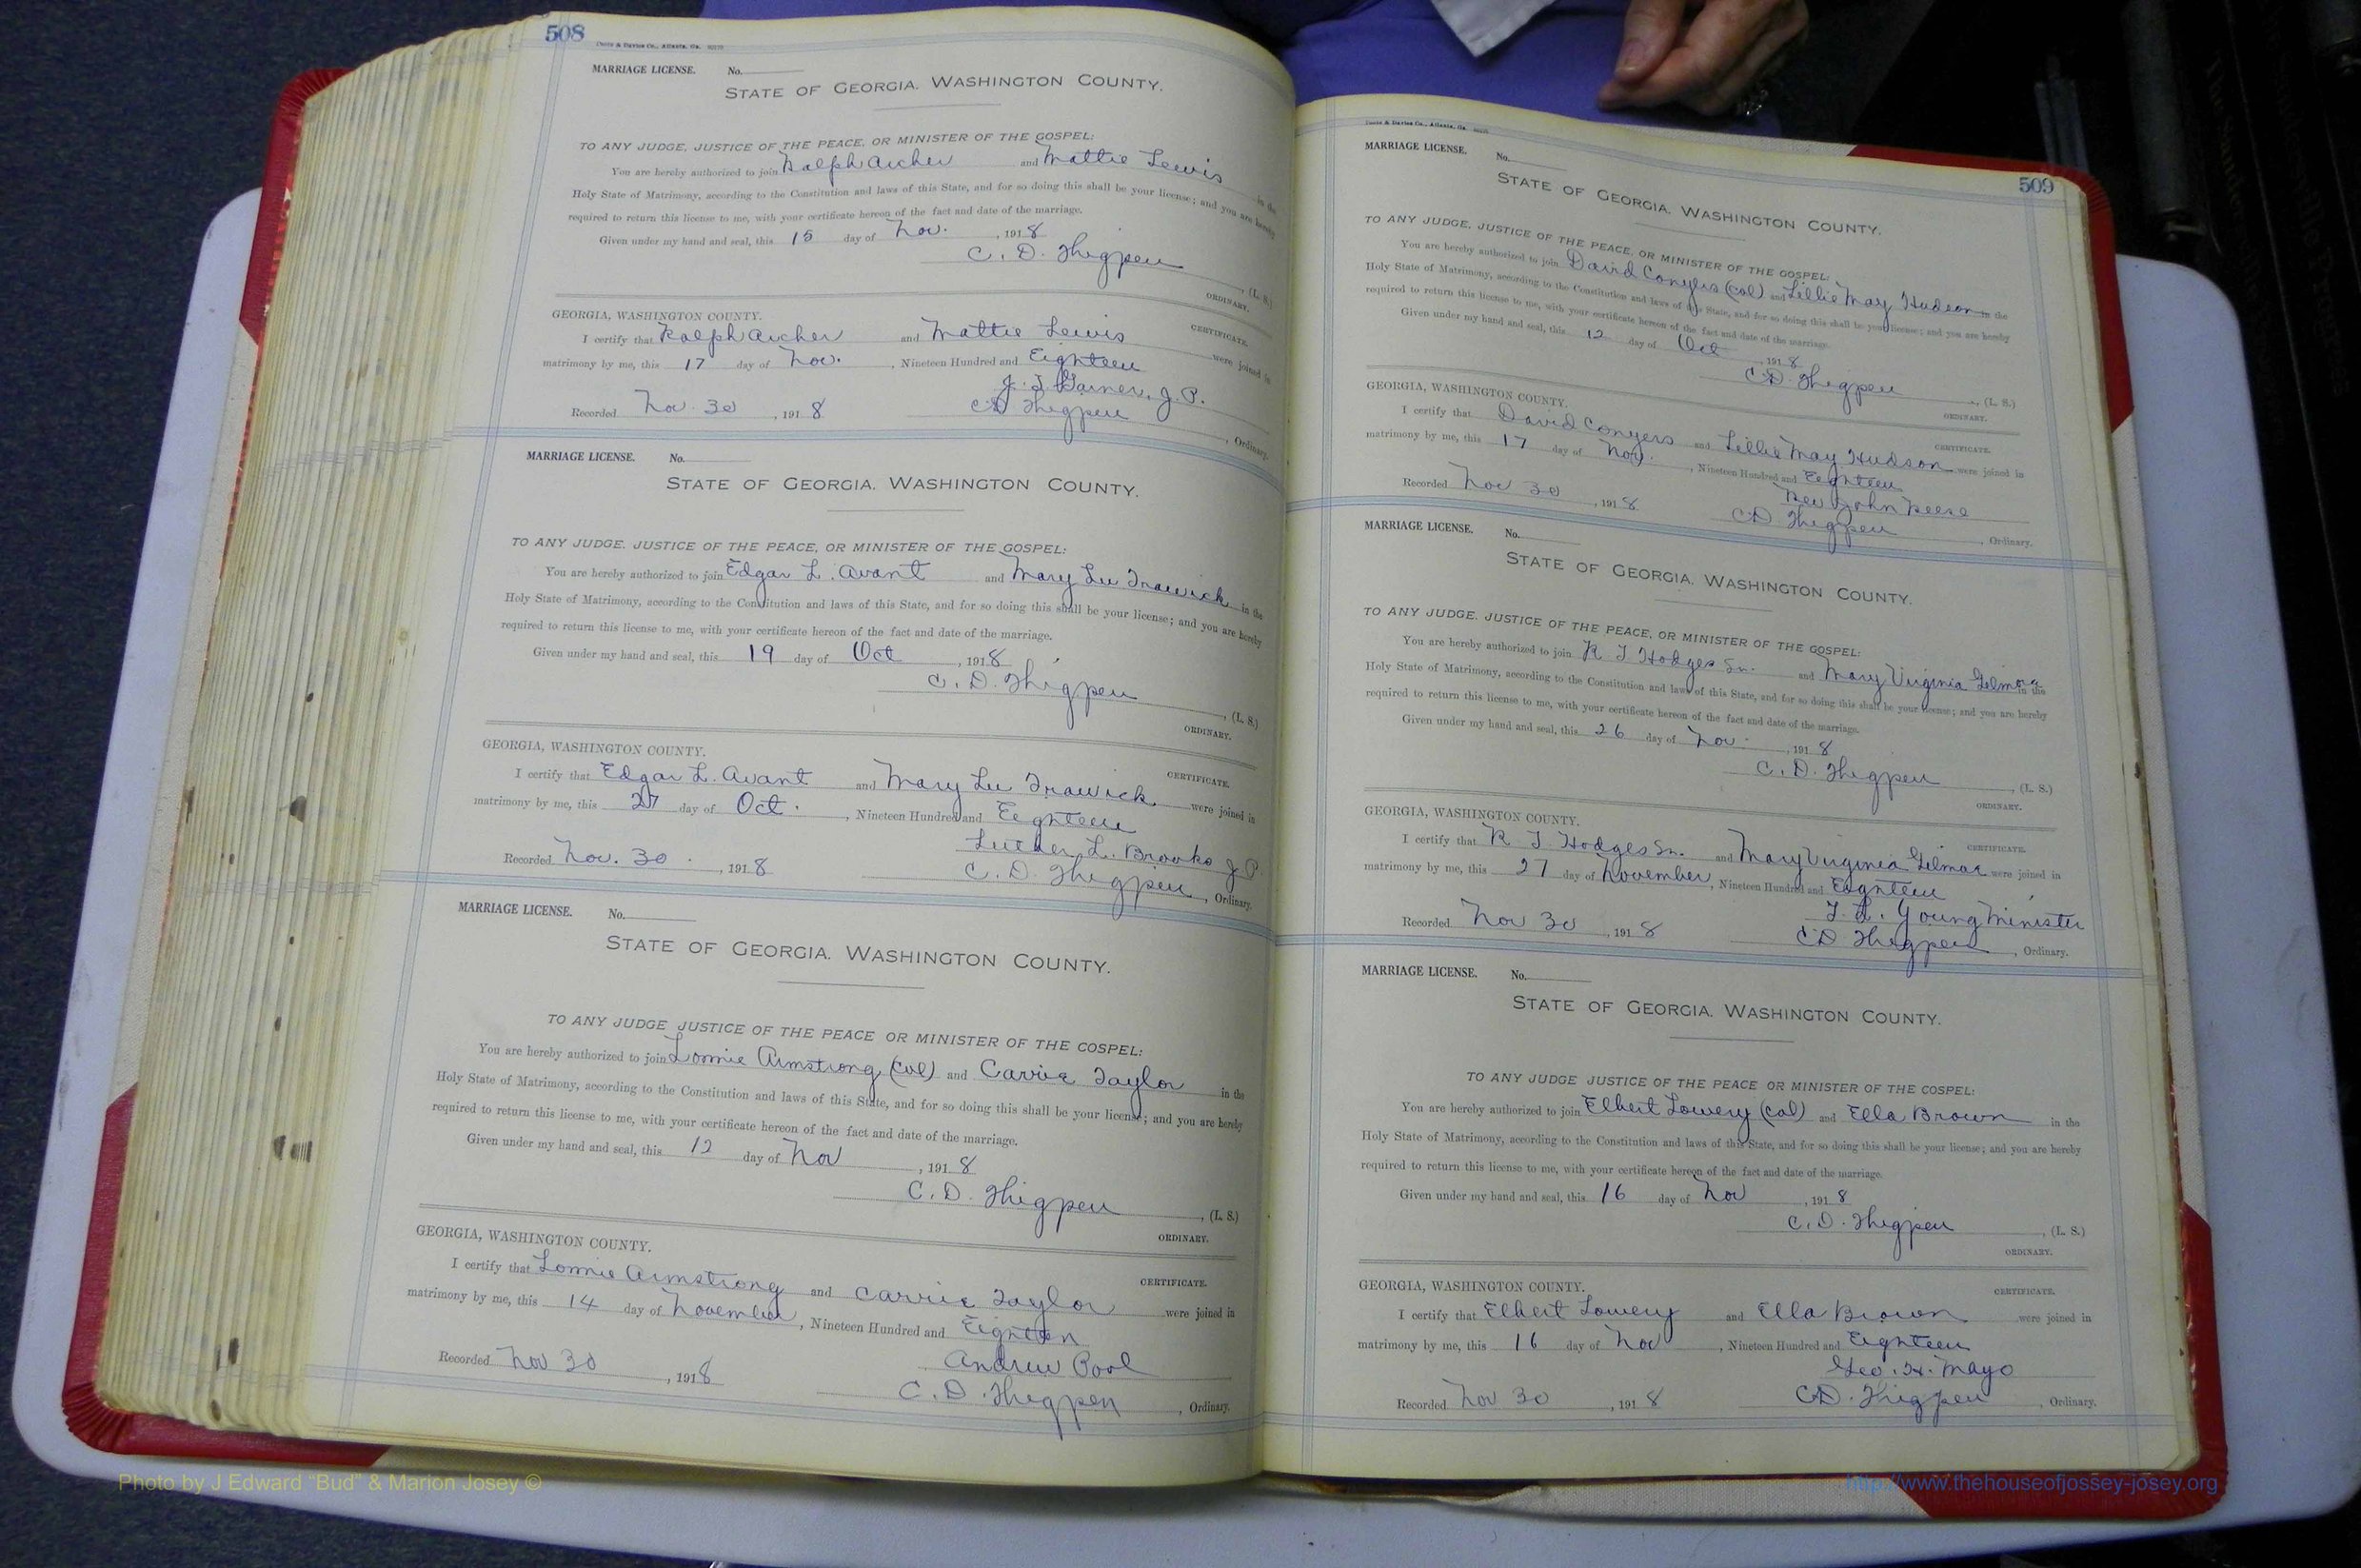 508
MARRIAGE LICENSE. No.
STATE OF GEORGIA. WASHINGTON COUNTY.
TO ANY JUDGE, JUSTICE OF THE PEACE, OR MINISTER OF THE GOSPEL:
You are hereby authorized to join Ralph Archer and Mattie Lewis in the
Holy State of Matrimony, according to the Constitution and laws of this State, and for so doing this shall be your license; and you are hereby
required to return this license to me, with your certificate hereon of the fact and date of the marriage.
Given under my hand and seal, this 15 day of Nov. , 1918
C. D. Thigpen , (L. S.)
ORDINARY.
GEORGIA, WASHINGTON COUNTY. CERTIFICATE.
I certify that Ralph Archer and Mattie Lewis were joined in
matrimony by me, this 17 day of Nov. , Nineteen Hundred and Eighteen
J. P.
Recorded Nov. 30 , 1918 C. D. Thigpen , Ordinary.
MARRIAGE LICENSE. No.
STATE OF GEORGIA. WASHINGTON COUNTY.
TO ANY JUDGE, JUSTICE OF THE PEACE, OR MINISTER OF THE GOSPEL:
You are hereby authorized to join Edgar L. Avant and Mary Lu Trawick in the
Holy State of Matrimony, according to the Constitution and laws of this State, and for so doing this shall be your license; and you are hereby
required to return this license to me, with your certificate hereon of the fact and date of the marriage.
Given under my hand and seal, this 19 day of Oct , 1918
C. D. Thigpen , (L. S.)
ORDINARY.
GEORGIA, WASHINGTON COUNTY. CERTIFICATE.
I certify that Edgar L. Avant and Mary Lu Trawick were joined in
matrimony by me, this 27 day of Oct. , Nineteen Hundred and Eighteen
Luther L. Brooks J P
Recorded Nov. 30 , 1918 C. D. Thigpen , Ordinary.
MARRIAGE LICENSE. No.
STATE OF GEORGIA. WASHINGTON COUNTY.
TO ANY JUDGE JUSTICE OF THE PEACE OR MINISTER OF THE COSPEL:
You are hereby authorized to join Lonnie Armstrong (col) and Carrie Taylor in the
Holy State of Matrimony, according to the Constitution and laws of this State, and for so doing this shall be your license; and you are hereby
required to return this license to me, with your certificate hereon of the fact and date of the marriage.
Given under my hand and seal, this 12 day of Nov , 1918
C. D. Thigpen , (L. S.)
ORDINARY.
GEORGIA, WASHINGTON COUNTY. CERTIFICATE.
I certify that Lonnie Armstrong and Carrie Taylor were joined in
matrimony by me, this 14 day of November , Nineteen Hundred and Eighteen
Andrew Pool
Recorded Nov 30 , 1918 C. D. Thigpen , Ordinary.
509
MARRIAGE LICENSE. No.
STATE OF GEORGIA. WASHINGTON COUNTY.
TO ANY JUDGE, JUSTICE OF THE PEACE, OR MINISTER OF THE GOSPEL:
You are hereby authorized to join David Conyers (col) and Lillie May Hudson in the
Holy State of Matrimony, according to the Constitution and laws of this State, and for so doing this shall be your license; and you are hereby
required to return this license to me, with your certificate hereon of the fact and date of the marriage.
Given under my hand and seal, this 12 day of Oct , 1918
C. D. Thigpen , (L. S.)
ORDINARY.
GEORGIA, WASHINGTON COUNTY. CERTIFICATE.
I certify that David Conyers and Lillie May Hudson were joined in
matrimony by me, this 17 day of Nov. , Nineteen Hundred and Eighteen
Rev John Reese
Recorded Nov 30 , 1918 C D Thigpen , Ordinary.
MARRIAGE LICENSE. No.
STATE OF GEORGIA. WASHINGTON COUNTY.
TO ANY JUDGE, JUSTICE OF THE PEACE, OR MINISTER OF THE GOSPEL:
You are hereby authorized to join R T Hodges Sr. and Mary Virginia Gilmore in the
Holy State of Matrimony, according to the Constitution and laws of this State, and for so doing this shall be your license; and you are hereby
required to return this license to me, with your certificate hereon of the fact and date of the marriage.
Given under my hand and seal, this 26 day of Nov. , 1918
C. D. Thigpen , (L. S.)
ORDINARY.
GEORGIA, WASHINGTON COUNTY. CERTIFICATE.
I certify that R T Hodges Sr. and Mary Virginia Gilmore were joined in
matrimony by me, this 27 day of November , Nineteen Hundred and Eighteen
Young Minister
Recorded Nov 30 , 1918 C D Thigpen , Ordinary.
MARRIAGE LICENSE. No.
STATE OF GEORGIA. WASHINGTON COUNTY.
TO ANY JUDGE JUSTICE OF THE PEACE OR MINISTER OF THE COSPEL:
You are hereby authorized to join Elbert Lowery (col) and Ella Brown in the
Holy State of Matrimony, according to the Constitution and laws of this State, and for so doing this shall be your license; and you are hereby
required to return this license to me, with your certificate hereon of the fact and date of the marriage.
Given under my hand and seal, this 16 day of Nov , 1918
C. D. Thigpen , (L. S.)
ORDINARY.
GEORGIA, WASHINGTON COUNTY. CERTIFICATE.
I certify that Elbert Lowery and Ella Brown were joined in
matrimony by me, this 16 day of Nov , Nineteen Hundred and Eighteen
Geo. H. Mayo
Recorded Nov 30 , 1918 C. D. Thigpen , Ordinary.
Photo by J Edward “Bud” & Marion Josey ©
http://www.thehouseofjossey-josey.org